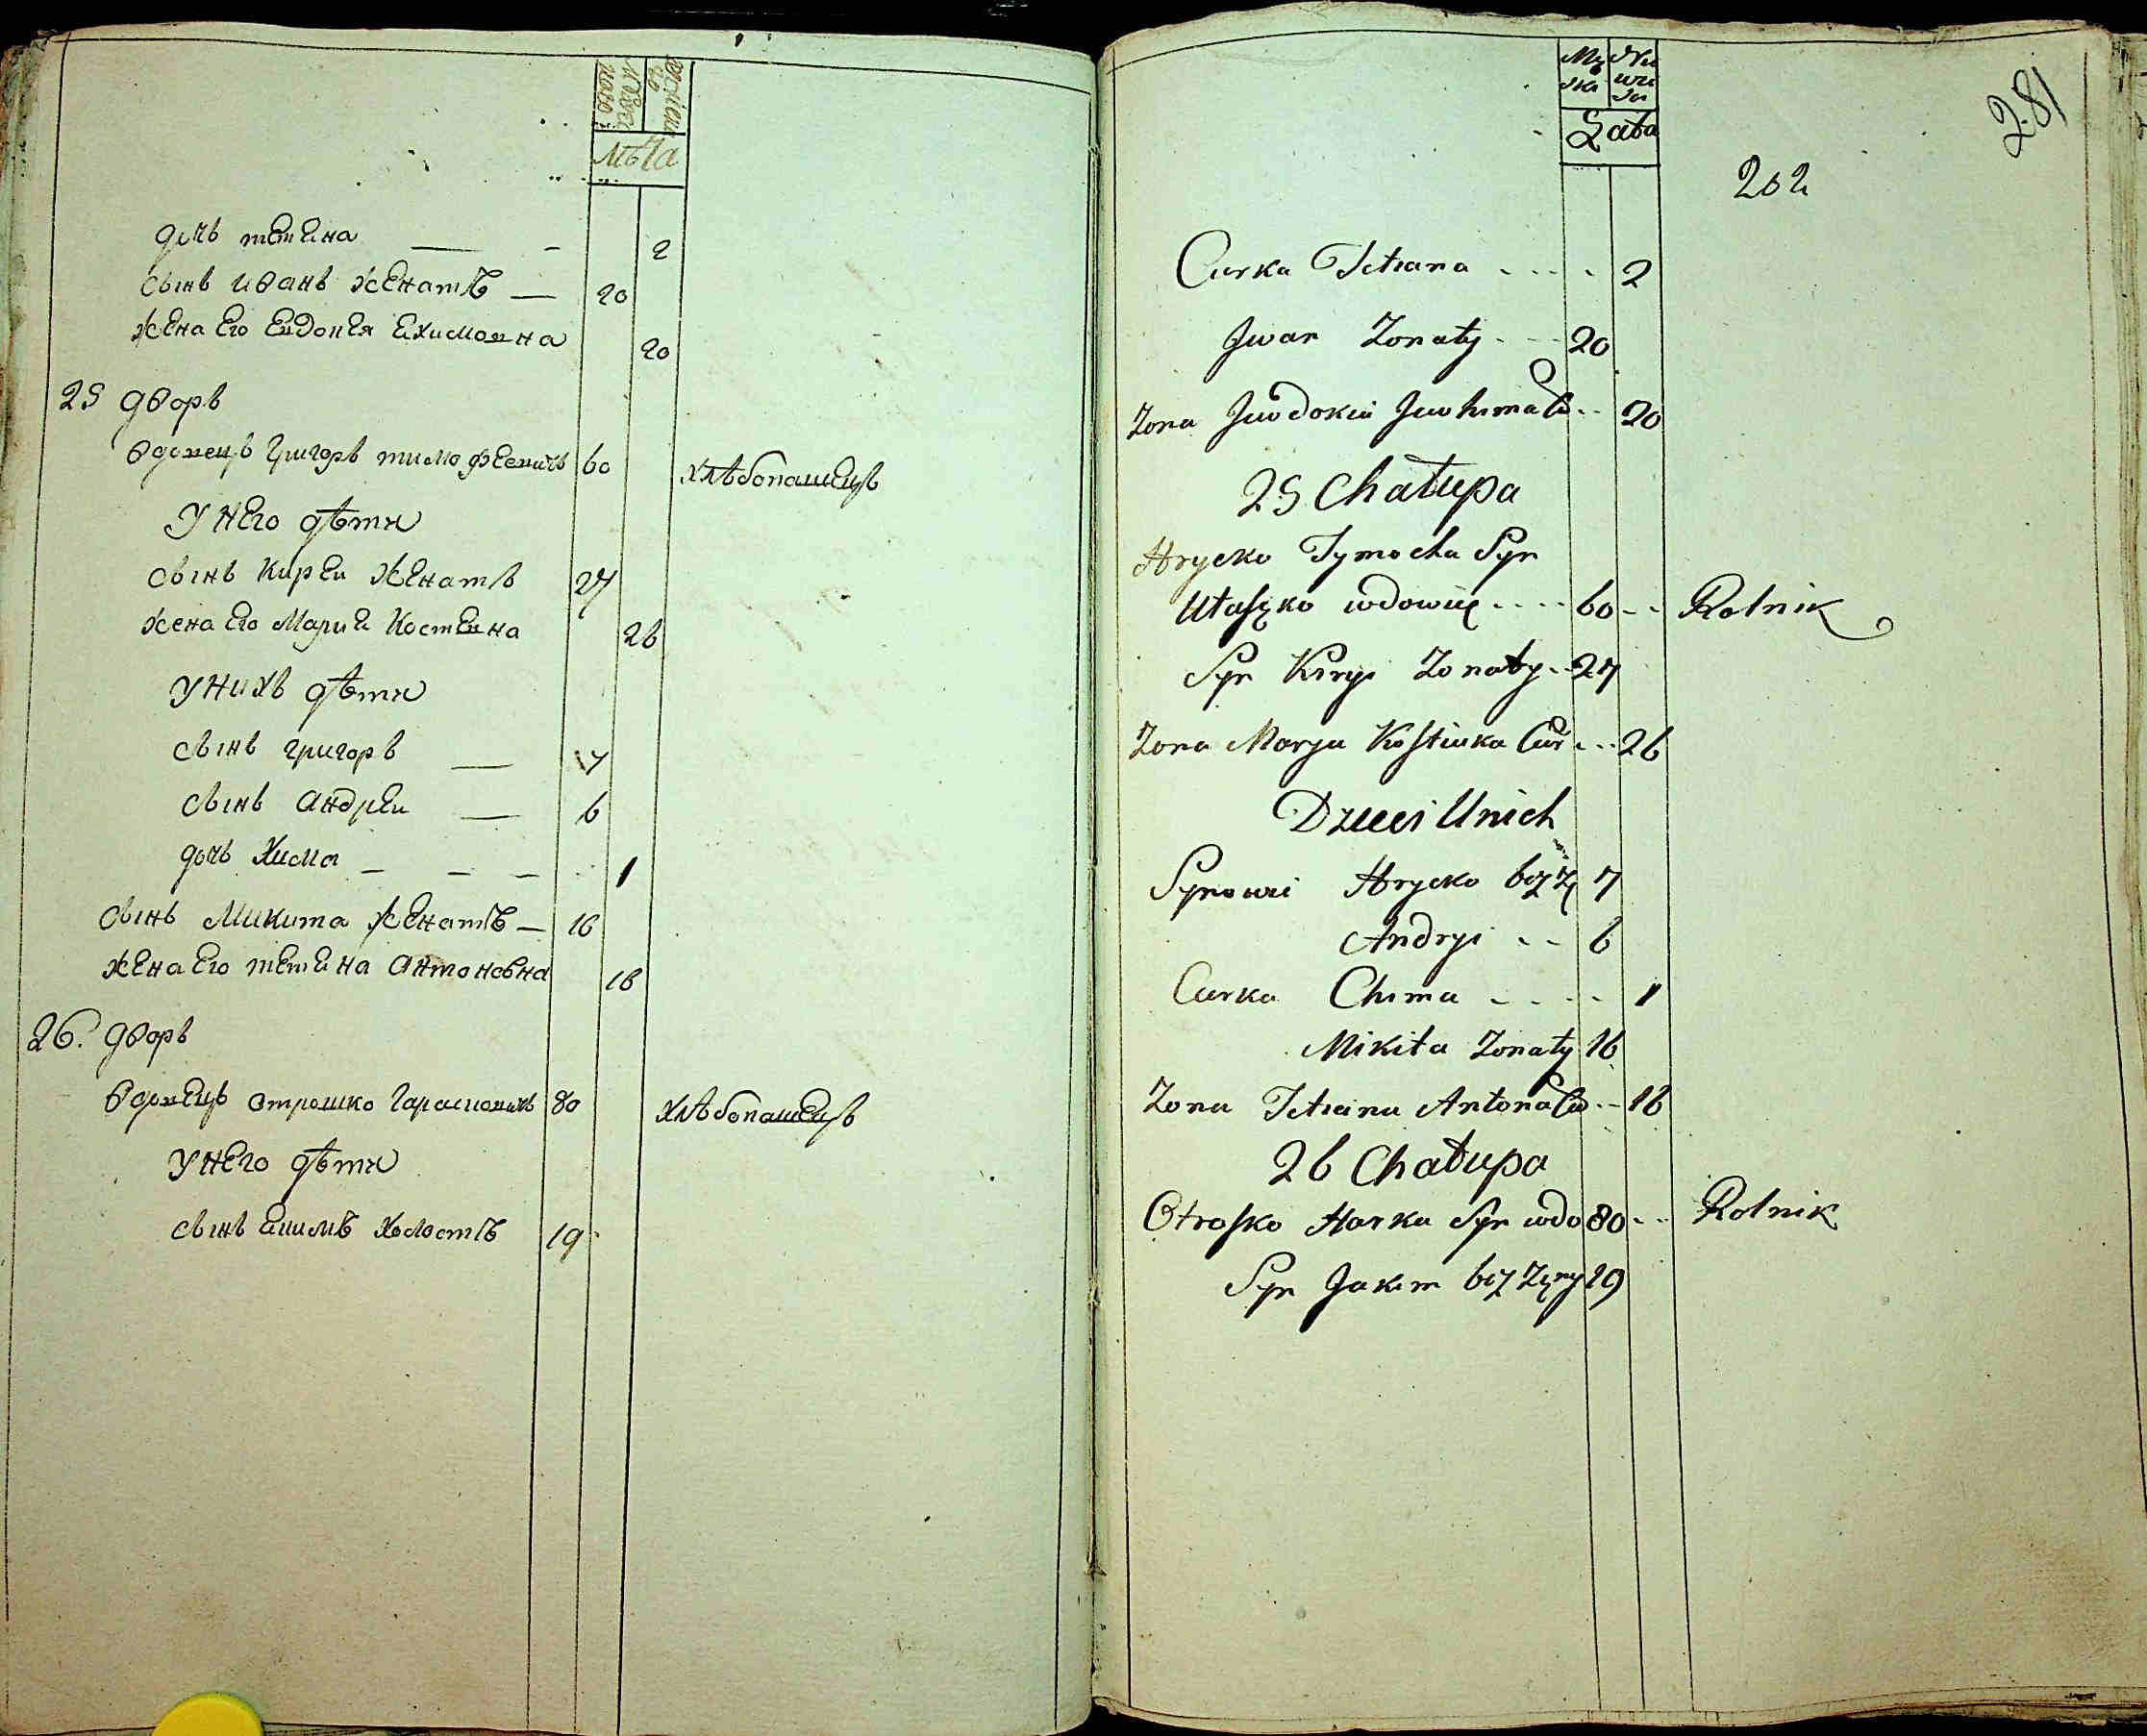 мужеска
женска
лѣта
дочь тетяна — - 2
сынъ иванъ женатъ — 20
жена его евдокея ехимовна 20
25 дворъ
вдовецъ григоръ тимофеевичъ 60 хлѣбопашецъ
у него дѣти
сынъ Кирей женатъ 27
жена его Мария Костевна 26
у нихъ дѣти
сынъ григоръ — 7
сынъ андрей — 6
дочь Хима - - - 1
сынъ Микита женатъ — 16
жена его тетяна антоновна 16
26. дворъ
вдовецъ отрошко гарасимовичъ 80 хлѣбопашецъ
у него дѣти
сынъ екимъ холостъ 19
281
Męz ska Nie wia sta
Lata
202
Curka Tetiana .... 2
Jwan Zonaty .-- 20
Zona Jwdokia Jwhima C .. 20
25 Chałupa
Hrycko Tymocha Syn
Ułaszko wdowiec .... 60 -- Rolnik
Syn Kiryi Zonaty .. 27
Zona Marya Kostiuka Cur ... 26
Dzieci Unich
Synowie Hrycko bez Z 7
Andryi .. 6
Curka Chima .... 1
Mikita Zonaty 16
Zona Tetiana Antona Cu .. 16
26 Chałupa
Otrosko Harka Syn wdo 80 ... Rolnik
Syn Jakim bez Zęny 19